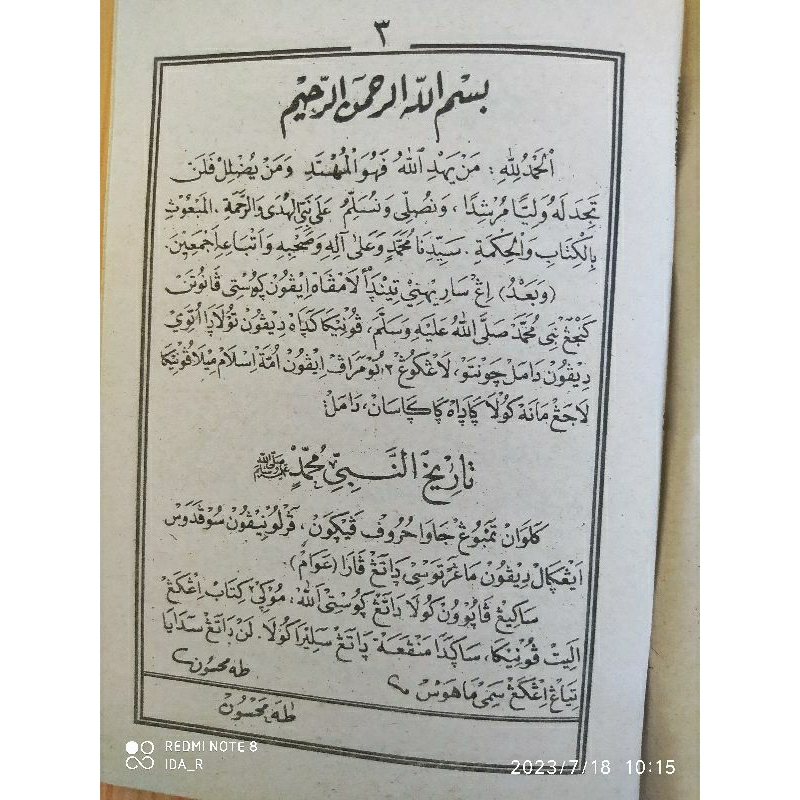 ٣
بِسْمِ اللهِ الرَّحْمٰنِ الرَّحِيْمِ
اَلْحَمْدُ لِلّٰهِ : مَنْ يَهْدِ اللهُ فَهُوَ الْمُهْتَدِ وَمَنْ يُضْلِلْ فَلَنْ
تَجِدَ لَهُ وَلِيًّا مُرْشِدًا ، وَنُصَلِّى وَنُسَلِّمُ عَلَى نَبِيِّ الْهُدَى وَالرَّحْمَةِ . اَلْمَبْعُوْثِ
بِالْكِتَابِ وَالْحِكْمَةِ . سَيِّدِنَا مُحَمَّدٍ وَعَلَى آلِهِ وَصَحْبِهِ وَاَتْبَاعِهِ اَجْمَعِيْنَ .
(وَبَعْدُ) اِڠ سَارِيهْنَيْ تِيندَاءْ لَامْڤَاهْ اِيڤُونْ ڮُوسْتِى ڤَانُوتَنْ
كَنْجَڠْ نَبِى مُحَمَّدْ صَلَّى اللهُ عَلَيْهِ وَسَلَّمَ، ڤُونِيكَا كَدَاهْ دِيڤُونْ تُوْلَادَا اُتَوِي
دِيڤُونْ دَامَلْ چَونْتَو، لَاڠْكُوڠْ ٢ تُومْرَافْ اِيڤُونْ اُمَّةْ اِسْلَامْ مِيْلَا ڤُونِيْكَا
لَاجَڠْ مَانَهْ كَوُلَا ڮَادَاهْ ڮَاڮَاسَانْ، دَامَلْ:
تَارِيْخُ النَّبِيِّ مُحَمَّدٍ ﷺ
كَلَوَانْ تَمْبُوڠْ جَاوَا حُرُوفْ ڤَيْڮَونْ، ڤَرْلُونِيْڤُونْ سُوْڤَدَوسْ
ڮَمْڤِيلْ دِيڤُونْ مَاڠَرْتَوسِى دَاتَڠْ ڤَارَا (عَوَامْ).
سَاكِيڠْ ڤَاپُوْوُونْ كَوُلَا دَاتَڠْ ڮُوسْتِى اَللهُ، مُوْڮِي٢ كِتَابْ اِڠْكَڠْ
اَلِيتْ ڤُونِيْكَا، سَاڮَدَا مَنْفَعَةْ دَاتَڠْ سَلِيْرَا كَوُلَا. لَنْ دَاتَڠْ سَدَايَا
تِيَاڠْ اِڠْكَڠْ سَمِي مَاهَوسْ
طه محسون
طٰهٰ مَحْسُونْ
REDMI NOTE 8
IDA_R
2023/7/18 10:15